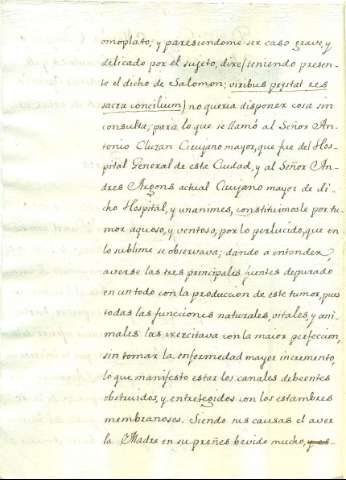 omoplato; y paresiendome ser caso grave, y
delicado por el sujeto, dixe (teniendo presen-
te el dicho de Salomon; viribus pegitat res
sacra concilium) no queria disponer cosa sin
consulta; para lo que se llamó al Señor An-
tonio Cluzan Cirujano mayor, que fue del Hos-
pital General de esta Ciudad, y al Señor An-
dres Argons actual Cirujano mayor de di-
cho Hospital, y unanimes, constituimosle por tu-
mor aquoso, y ventoso, por lo perlucido, que en
lo sublime se observava; dando a entender,
averse las tres principales fuentes depurado
en un todo con la produccion de este tumor, pues
todas las funciones naturales, vitales, y ani-
males las exercitava con la maior perfeccion,
sin tomar la enfermedad mayor incremento,
lo que manifesto estar los canales deferentes
obstruidos, y entretegidos con los estambres
membranosos. Siendo sus causas el aver
la Madre en su preñes bevido mucho,